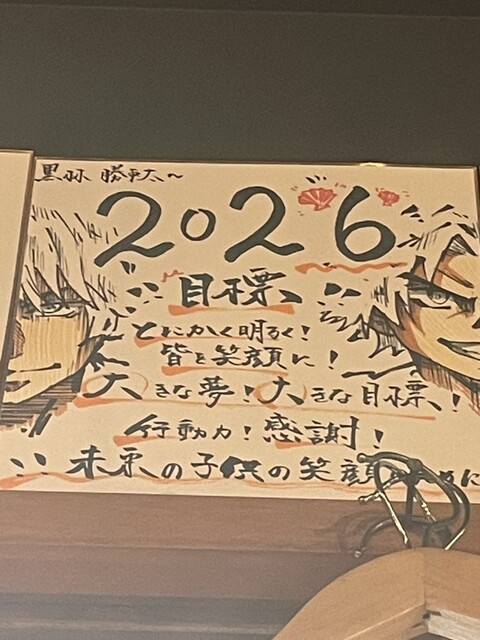 黒羽 勝平太〜
2026
目標、
とにかく明るく!
皆を笑顔に!
大きな夢!大きな目標!
行動力!感謝!
未来の子供の笑顔 に